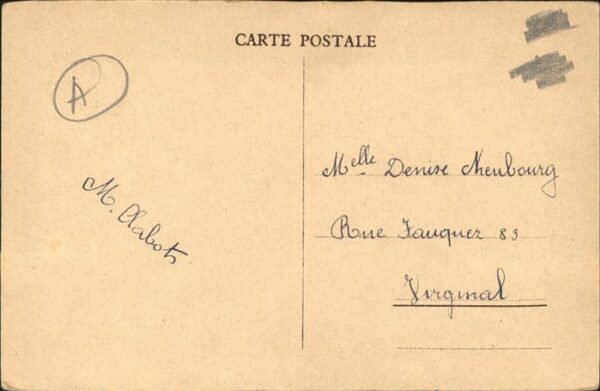 CARTE POSTALE
A
M. Clabots
Melle Denise Neubourg
Rue Fauquez 83
Virginal